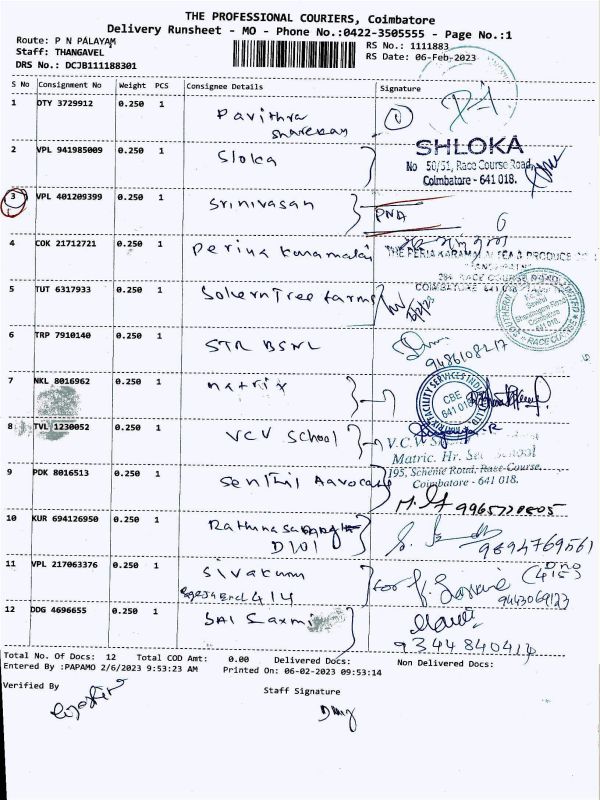 THE PROFESSIONAL COURIERS, Coimbatore
Delivery Runsheet - MO - Phone No.:0422-3505555 - Page No.:1
Route: P N PALAYAM
RS No.: 1111883
Staff: THANGAVEL
RS Date: 06-Feb-2023
DRS No.: DCJB111188301
S No Consignment No Weight PCS Consignee Details Signature
1 DTY 3729912 0.250 1 Pavithra
2 VPL 941985009 0.250 1 Sloka
SHLOKA
No 50/51, Race Course Road,
Coimbatore - 641 018.
3 VPL 401209399 0.250 1 Srinivasan PNA
4 COK 21712721 0.250 1 Periya Karamalai
THE PERIA KARAMALAI TEA & PRODUCE
RACE COURSE ROAD
COIMBATORE 641 018
5 TUT 6317933 0.250 1
6 TRP 7910140 0.250 1 STR BSNL
7 NKL 8016962 0.250 1 matrix
MATRIX FACILITY SERVICES INDIA
CBE
641 018
8 TVL 1230052 0.250 1 VCV School
V.C.V
Matric. Hr. Sec School
195, Scheme Road, Race-Course,
Coimbatore - 641 018.
9 PDK 8016513 0.250 1 Senthil
9965728805
10 KUR 694126950 0.250 1
D101
9894769561
11 VPL 217063376 0.250 1 Sivakum
414
for
D no
(415)
9443069123
12 DDG 4696655 0.250 1 SAI Laxmi
9344840414
Total No. Of Docs: 12 Total COD Amt: 0.00 Delivered Docs: Non Delivered Docs:
Entered By :PAPAMO 2/6/2023 9:53:23 AM Printed On: 06-02-2023 09:53:14
Verified By
Staff Signature